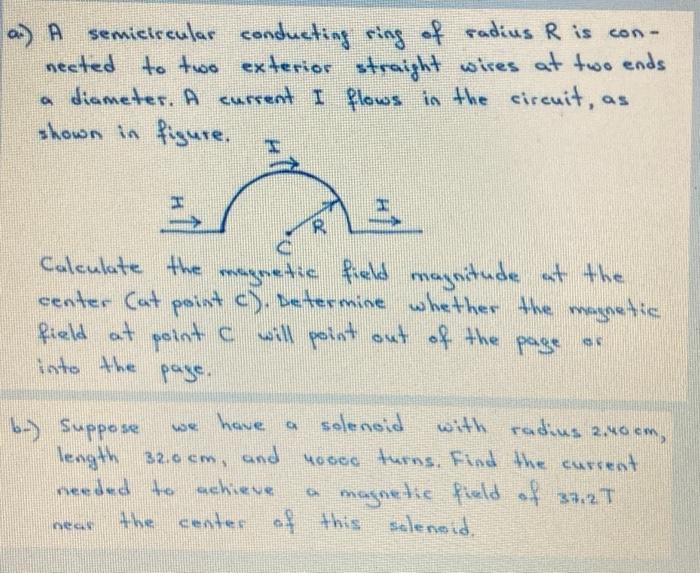 a-) A semicircular conducting ring of radius R is con-
nected to two exterior straight wires at two ends
a diameter. A current I flows in the circuit, as
shown in figure.
I
I
I
R
C
Calculate the magnetic field magnitude at the
center (at point C). Determine whether the magnetic
field at point C will point out of the page or
into the page.
b-) Suppose we have a solenoid with radius 2.40 cm,
length 32.0 cm, and 40000 turns. Find the current
needed to achieve a magnetic field of 37.2 T
near the center of this solenoid.